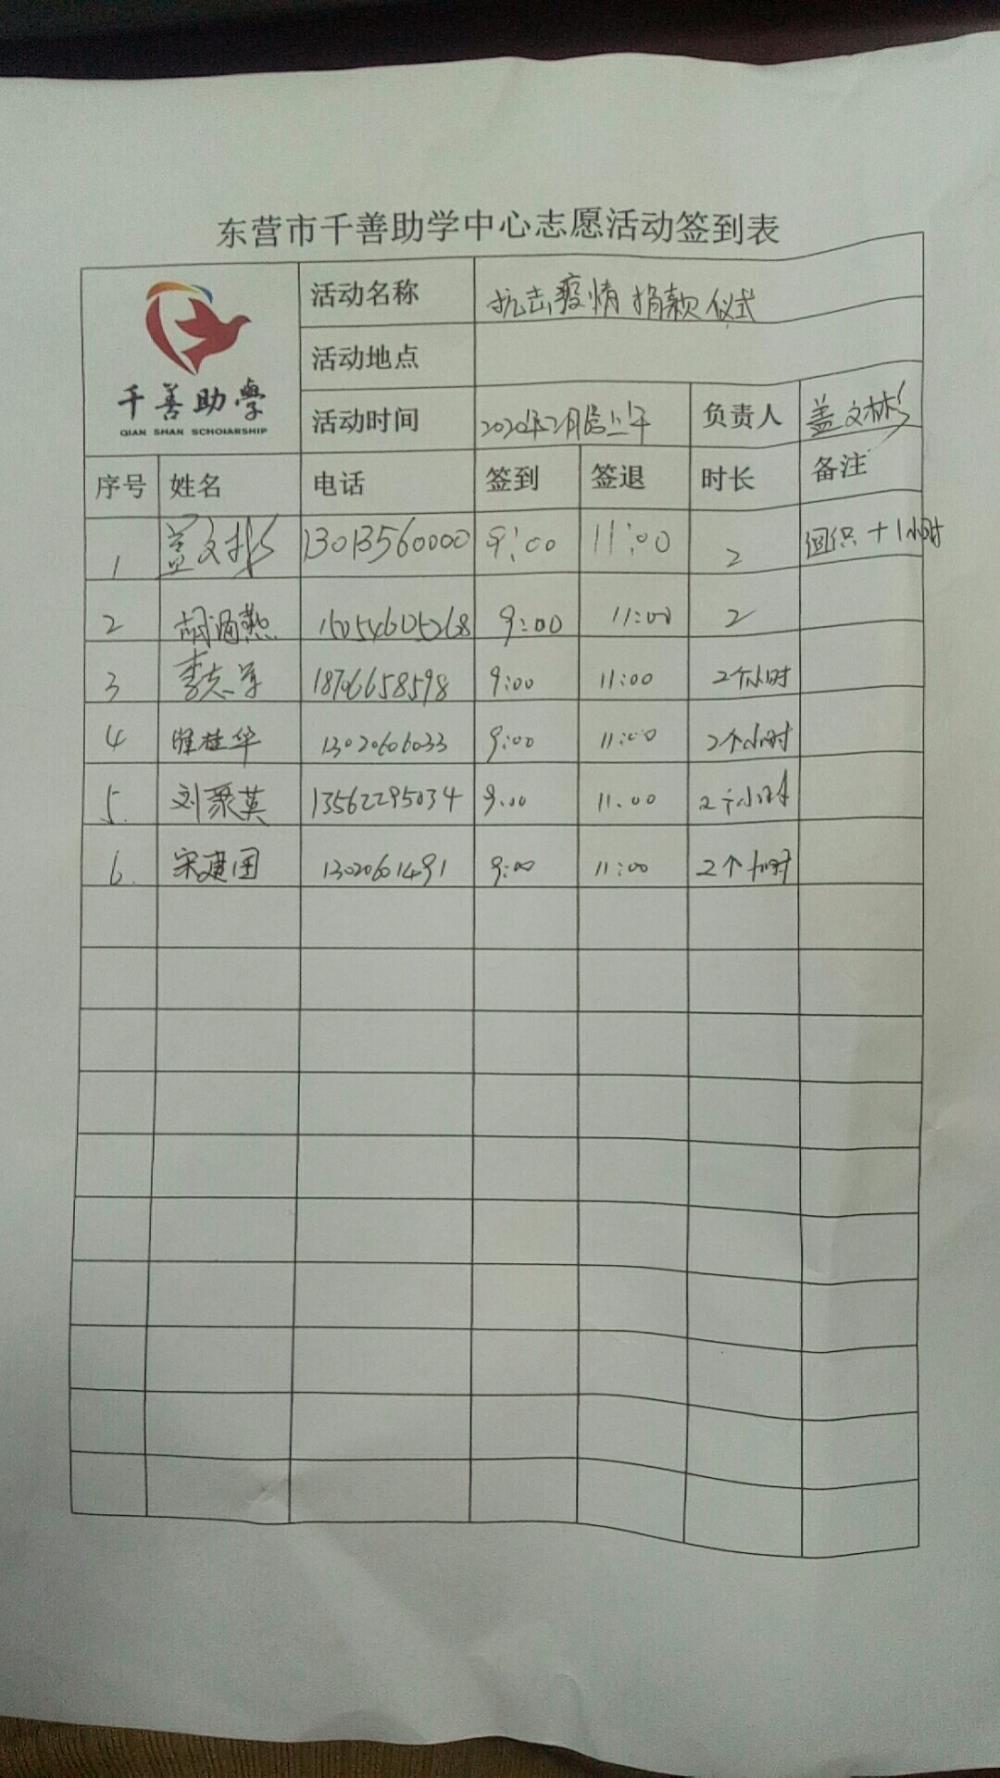 东营市千善助学中心志愿活动签到表
千善助學
QIAN SHAN SCHOIARSHIP
活动名称 抗击疫情捐款仪式
活动地点
活动时间 2020年2月 上午 负责人 盖文彬
序号 姓名 电话 签到 签退 时长 备注
1 盖文彬 13013560000 9:00 11:00 2 组织+1小时
2 胡 15054605268 9:00 11:00 2
3 李志军 18706658598 9:00 11:00 2个小时
4 桂华 13020606033 9:00 11:00 2个小时
5. 刘聚英 13562295034 9:00 11:00 2个小时
6. 宋建国 13020601491 9:00 11:00 2个小时